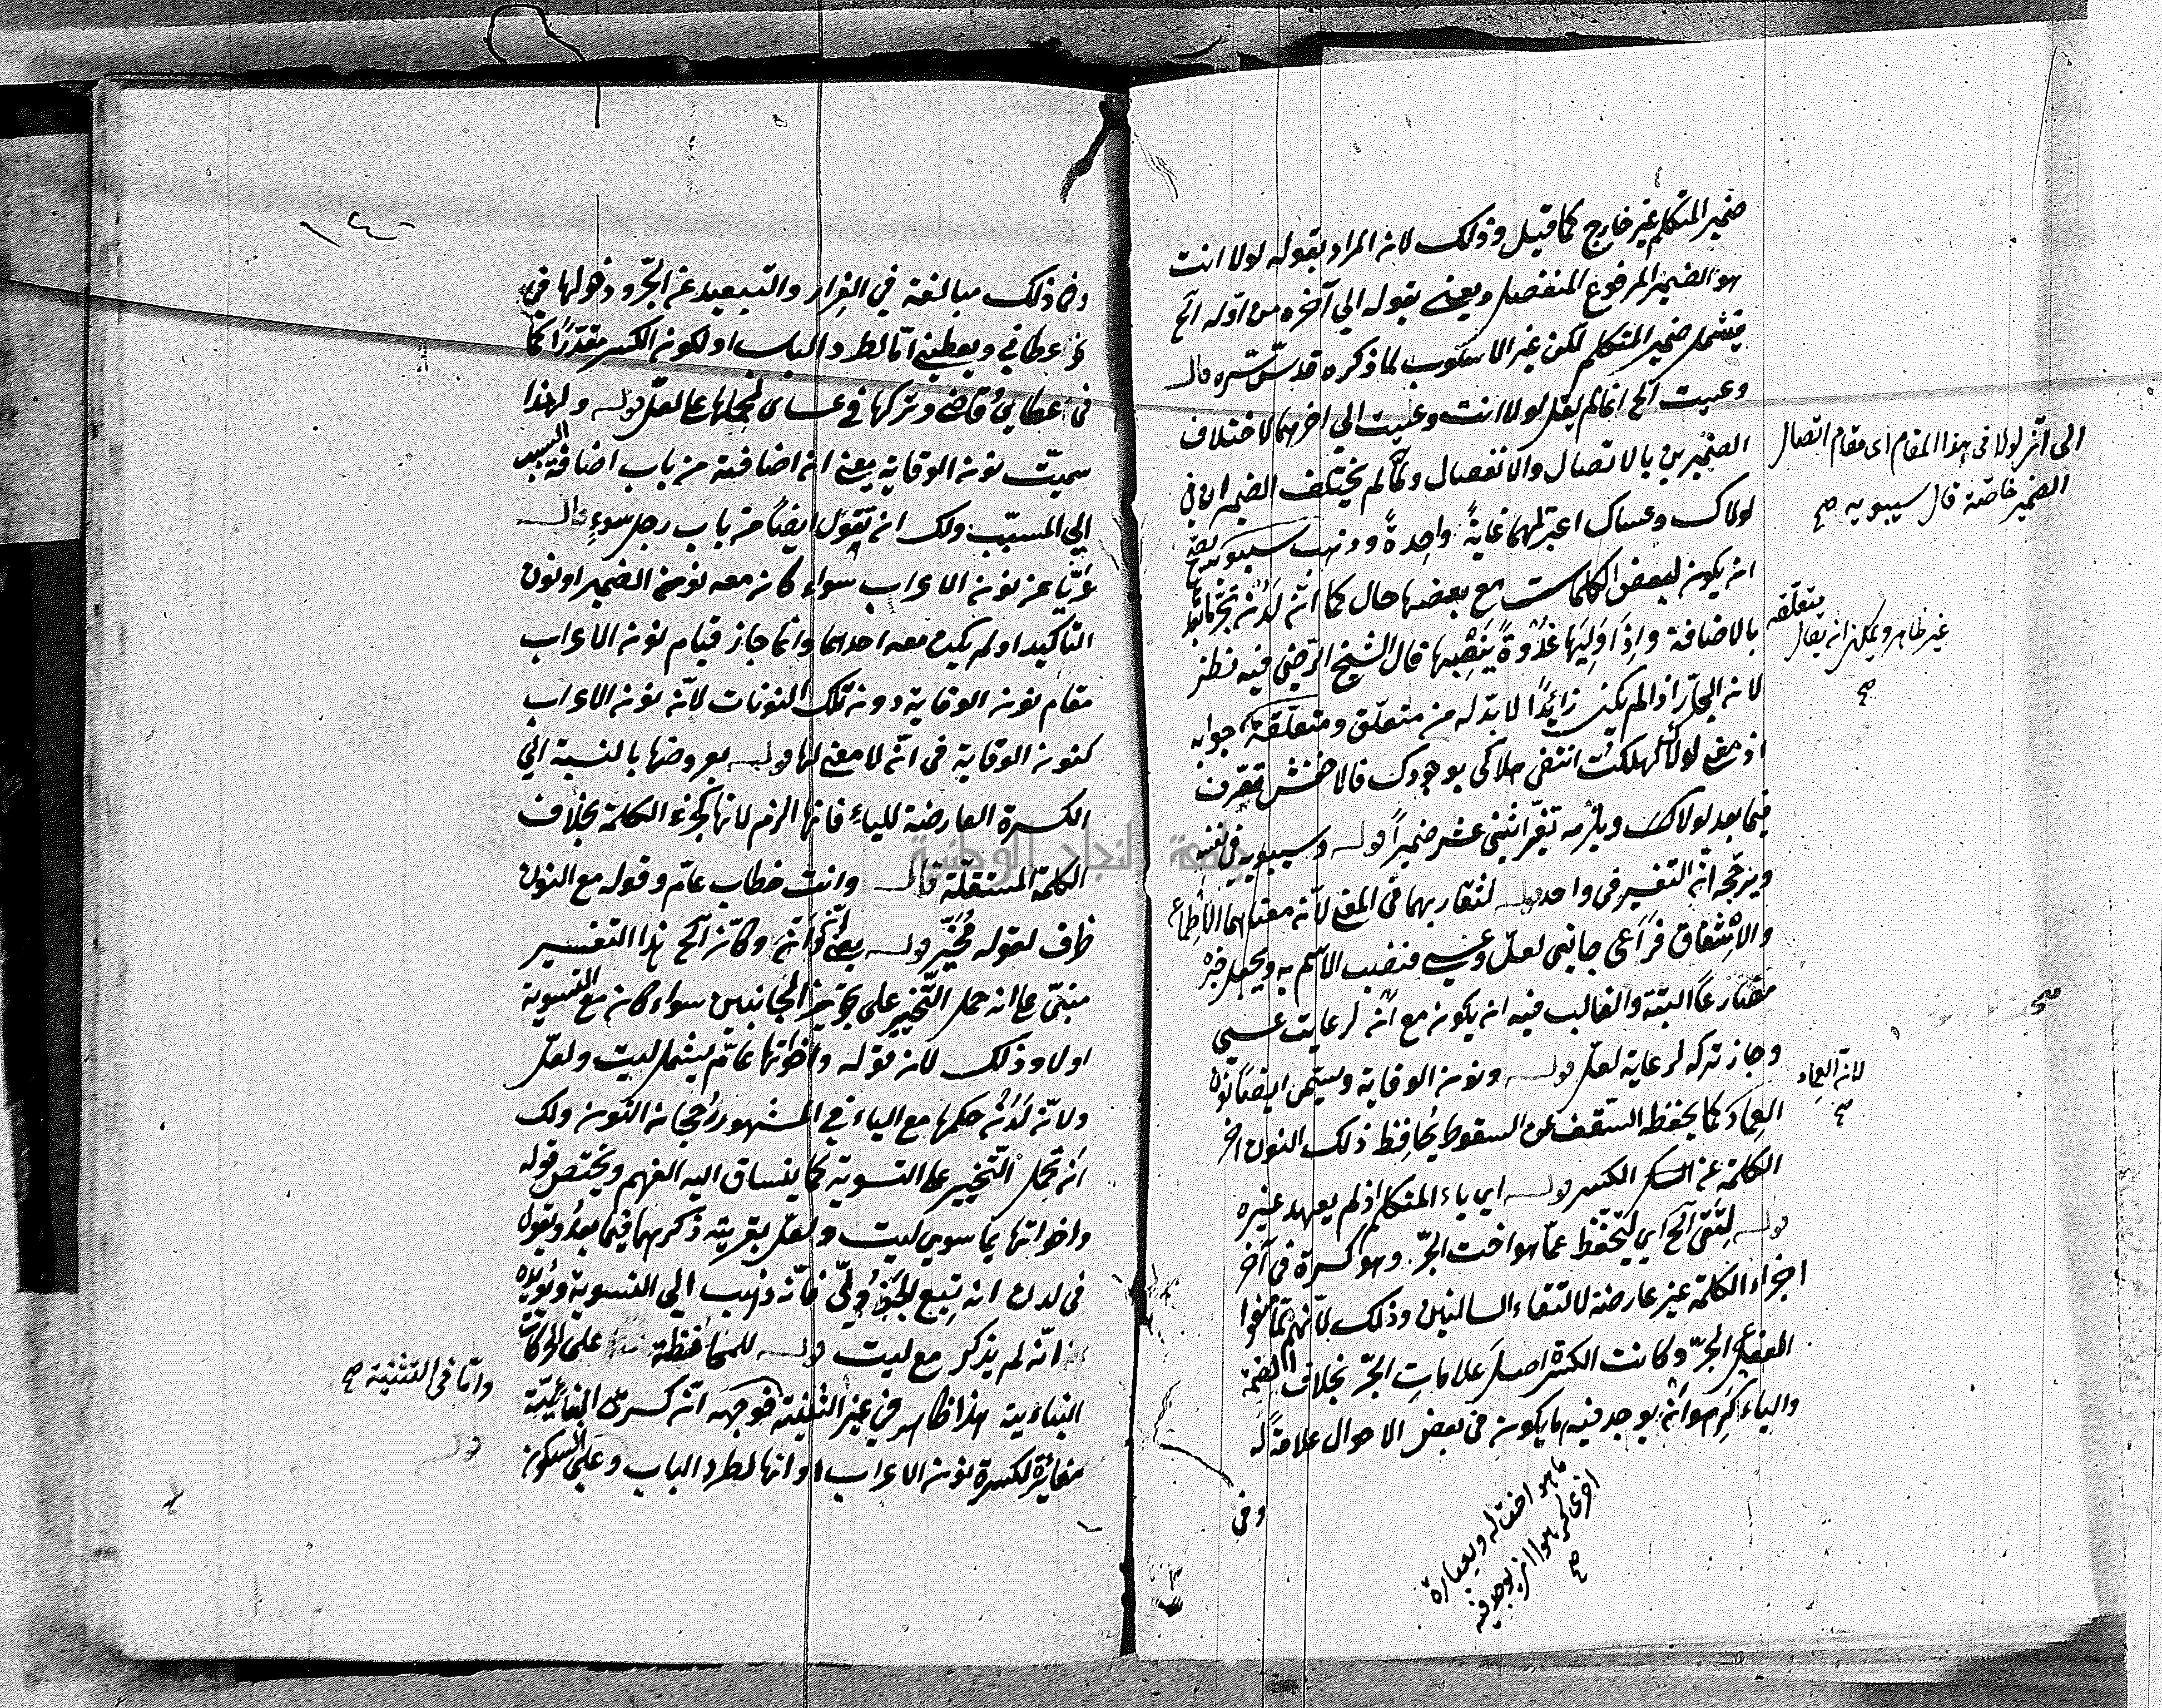 ضمير المتكلم غير خارج كما قيل وذلك لان المراد بقوله لولا انت
هو الضمير المرفوع المنفصل ويعنى بقوله الي آخره من اوّله الخ
فيشمل ضمير المتكلم لكن غير الاسلوب لما ذكره قدسّ سّره قال
وعسيت الخ انما لم يقل لولا انت وعسيت الى اخرهما لاختلاف
الضميرين بالاتصال والانفصال ولمّا لم يختلف الضميران في
لولاك وعساك اعتبر لهما غايةً واحدةً وذهب سيبويه
الى انّ لولا فى هذا المقام اى مقام اتصال
الضمير خاصّة قال سيبويه صح
ان يكون لبعض الكلمات مع بعضها حال كما انّ لَدُنْ تجرّ ما بعد
بالاضافة واِذَا وَلِيَها غُدْوةً يَنْصِبها قال الشيخ الرّضى فيه نظر
لان الجارّ اذا لم يكن زائدًا لا بدّ له من متعلّق ومتعلّقه جوابه
غير ظاهر ويمكن ان يقال يتعلّقه
صح
اذ معنى لولاك لهلكت انتفى هلاكى بوجودك فالاخفش تصرّف
فيما بعد لولاك ويلزمه تغيّر اثنى عشر ضميرًا قوله وسيبويه في نفسه
ويرجّحه انّ التغيير فى واحد قوله لتقاربهما فى المعنى لانّ معناهما الاطماع
والاشفاق فَرَاعى جانبى لعلّ وعسى فنصب الاسم به ويجعل خبره
مضارعًا البتة والغالب فيه ان يكون مع أنْ لرعايت عسى
وجاز تركه لرعاية لعلّ قوله ونون الوقاية ويسمّى ايضًا نون
العِمادَ كما يحفظ السّقف عن السقوط يُحافِظ ذلك النون اخر
لانّ العماد
صح
الكلمة عن الكسر قوله اي ياء المتكلم اذ لم يعهد غيره
قوله لِتَقى الخ اي ليتحفّظ عمّا هو اخت الجرّ وهو كسرة فى آخر
اجزاء الكلمة غير عارضة لالتقاء الساكنين وذلك لانّهم لمّا منعوا
الفعل الجرّ وكانت الكسرة اصلَ علاماتِ الجرّ بخلاف الضمّة
والياء كَرِهوا انْ يوجد فيه ما يكون فى بعض الاحوال علامةً له
ما هو اخت له وبعبارة
اخرى كرهوا ان يوجد فيه
صح
وفى
وفى ذلك مبالغة في الفِرار والتبعيد عن الجرّ ودخولها في
اعطانى ويعطينى امّا لطرد الباب او لكون الكسر مقدّرًا كما
فى عطاىِ وقاضى وتركها فى عساى لحملها على لعلّ قوله ولهذا
سميّت نون الوقاية يعنى ان اضافته من باب اضافة السبب
الي المسبّب ولك ان تقول ايضًا من باب رجل سوءٍ قال
عَرِيًّا عن نون الاعراب سواء كان معه نون الضمير او نون
التاكيد او لم يكن معه احداهما وانما جاز قيام نون الاعراب
مقام نون الوقاية دون تلك النونات لانّ نون الاعراب
كنون الوقاية فى انّه لا معنى لها قوله بعروضها بالنسبة الي
الكسرة العارضة للياء فانها الزم لانها كجزء الكلمة بخلاف
الكلمة المستقلّة قال وانت خطاب عامّ وقوله مع النون
ظرف لقوله مُخَيَّر قوله يعنى وكانّ الخ هذا التفسير
مبنىّ على انه حمل التّخيير على تجويز الجانبين سواء كان مع التسوية
اولا وذلك لان قوله واخواتها عامّ يشمل ليت ولعلّ
ولانّ لَدُنْ حكمها مع الياء في المشهور رُجحان النون ولك
ان تحمل التّخيير على التسوية كما ينساق اليه الفهم ويختص قوله
واخواتها بما سوي ليت ولعلّ بقرينة ذكرهما فيما بعدُ ويقول
فى لدن انه تبع لجُزُولىّ فانّه ذهب الي التسوية ويُؤيّده
انّه لم يذكر مع ليت قوله للمحافظة على الحركات
البنائية هذا ظاهر في غير التثنية فوجهه انّ كسرتهُ البنائيّة
وامّا فى التثنية صح
مغايرة لكسرة نون الاعراب او انها لطرد الباب وعلى السكون
جامعة النجاح الوطنية